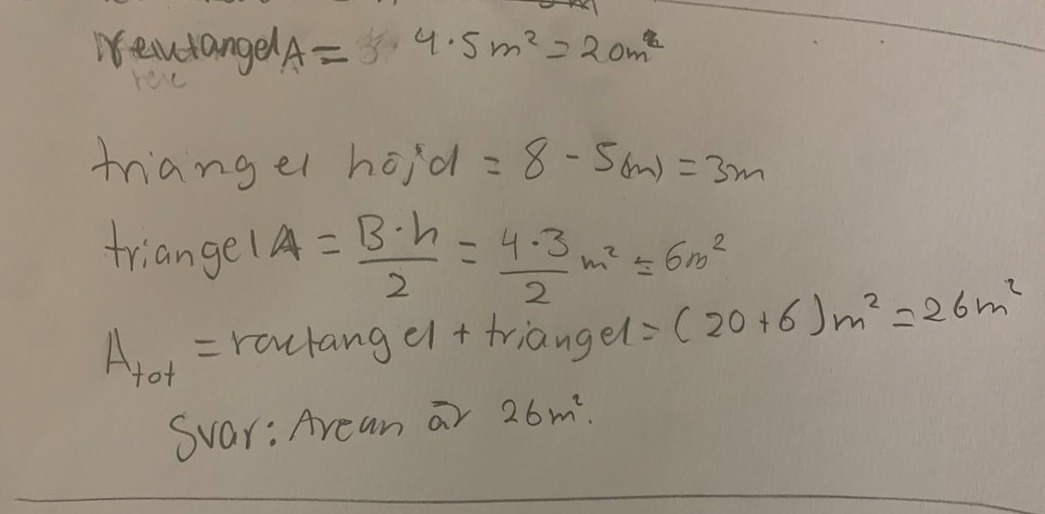 rektangel A = 4·5 m² = 20m²
triangel höjd = 8 - 5(m) = 3m
triangel A = B·h/2 = 4·3/2 m² = 6m²
A_tot = rektangel + triangel = (20+6)m² = 26m²
Svar: Arean är 26m².